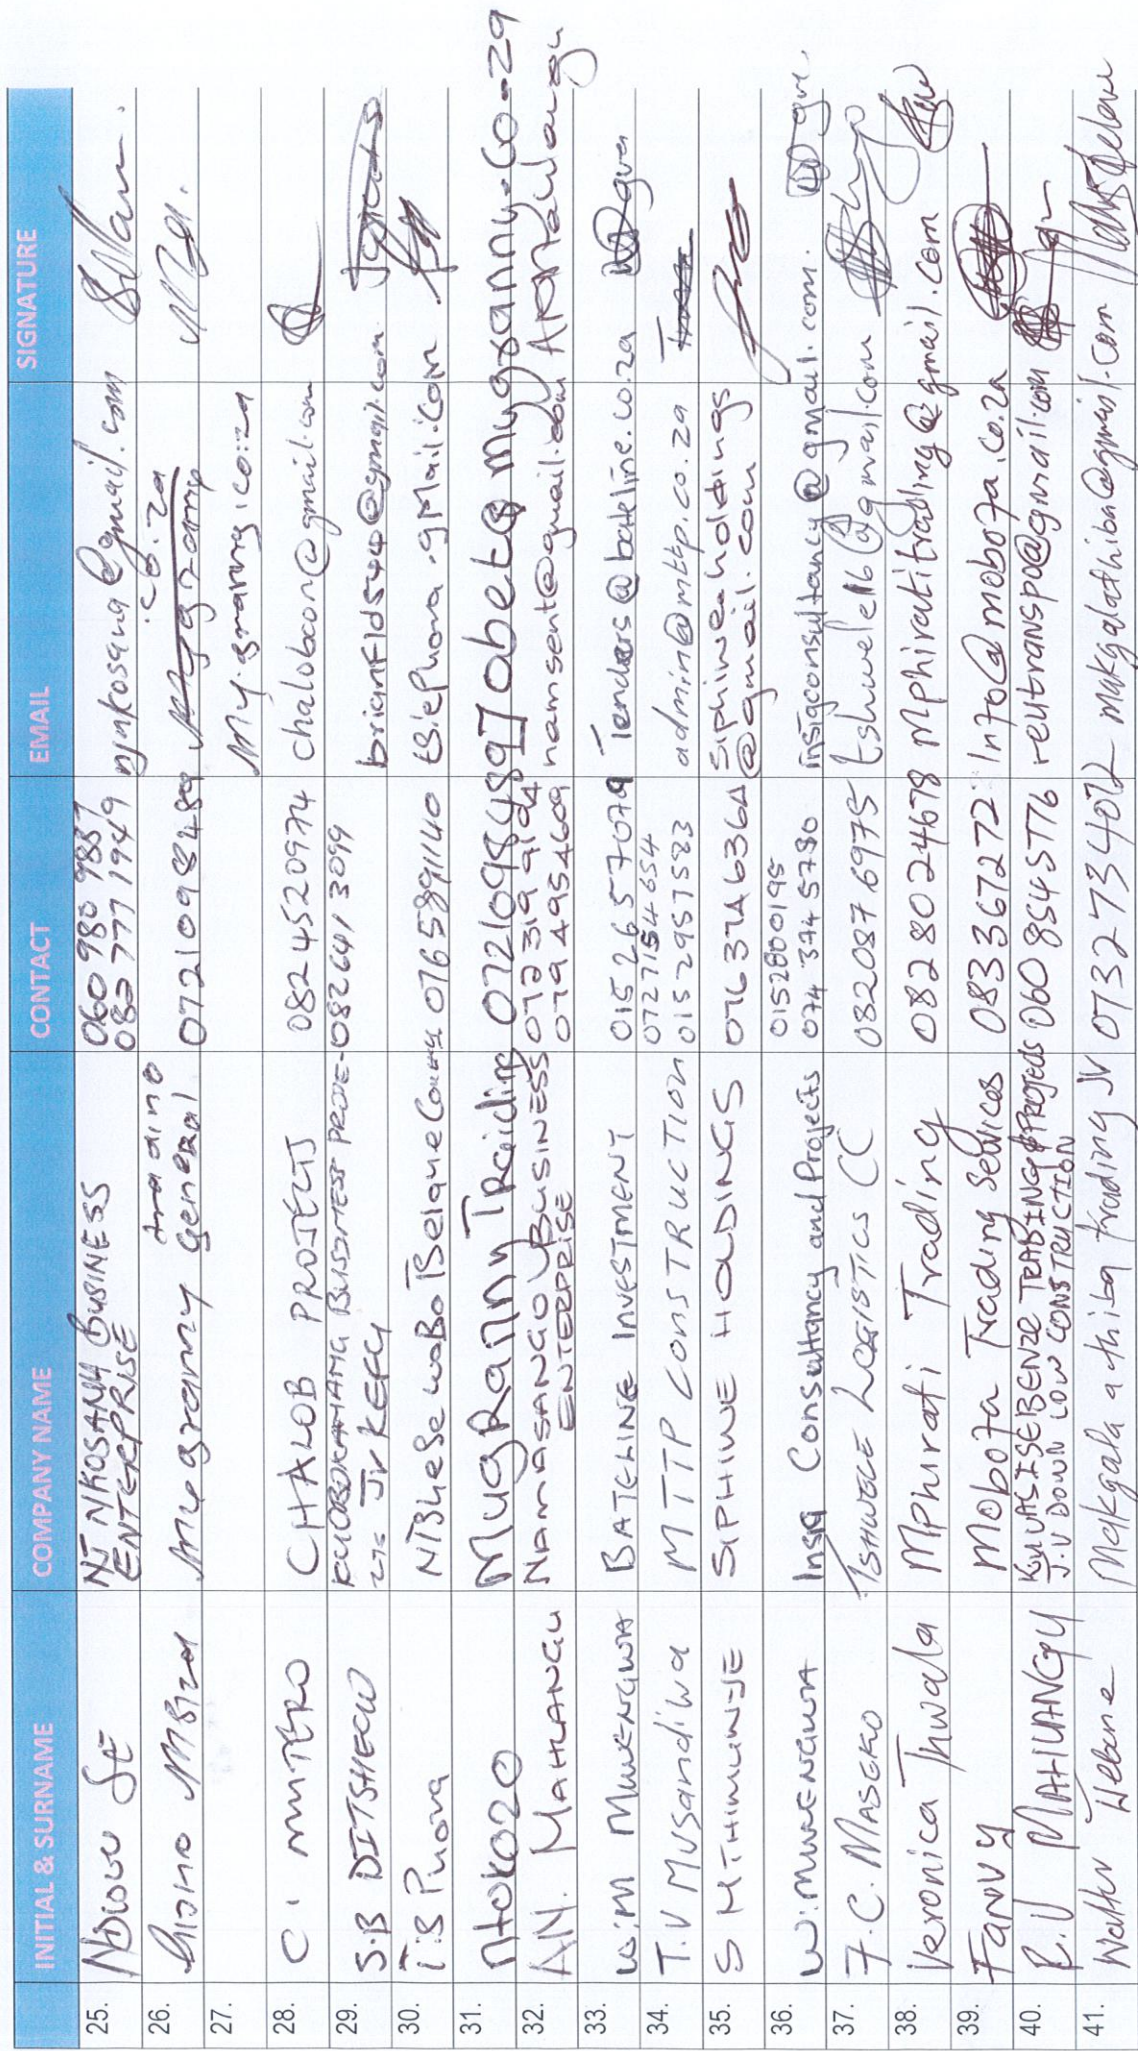 INITIAL & SURNAME COMPANY NAME CONTACT EMAIL SIGNATURE
25. NDLOVU SE NJ NKOSANA BUSINESS ENTERPRISE 060 980 9887 082 777 1949 njnkosana@gmail.com
26. MBIZA Mygranny General trading 0721098489 .co.za
27. My.granny.co.za
28. C. I MMTERO CHALOB PROJECTS 082 452 0974 chalobcon@gmail.com
29. S.B DITSHEGO BUSINESS PROJE- CTS JV KEFG 082 641 3099 brianfids40@gmail.com
30. T.S Phora NTShebe waBo TBelaneConstr 0765891140 tsiephora.gMail.com
31. Ntokozo MugRanny Traiding 0721098489 Jobet@mygranny.co.za
32. A.N. MAHLANGU NAMASANGO BUSINESS ENTERPRISE 072 319 9194 079 495 4609 namsent@gmail.com AN Mahlangu
33. W.M MUVENGWA BATELINE INVESTMENT 015 265 7079 Tenders@bateline.co.za
34. T.V Musandiwa MTTP CONSTRUCTION 0727154654 0152957583 admin@mttp.co.za
35. S MTHIMUNJE SIPHIWE HOLDINGS 076 374 6364 Siphiweholdings @gmail.com
36. W. MUVENGWA Insig Consultancy and Projects 0152800195 074 374 5780 insigconsultancy@gmail.com.
37. F.C. MASEKO TSHWELE LOGISTICS CC 082087 6975 tshwele16@gmail.com
38. Veronica Thwala Mphirati Trading 082 802 4678 Mphiratitrading@gmail.com
39. FANVY Mobota Trading Services 083 367 272 Info@mobota.co.za
40. R.V MAHLANGU KWASISEBENZE TRADING & PROJECTS J.V DOWN LOW CONSTRUCTION 060 854 5776 reutranspo@gmail.com
41. Walter Welane Makgala a thiba trading JV 073 273 4072 makgalathiba@gmail.com